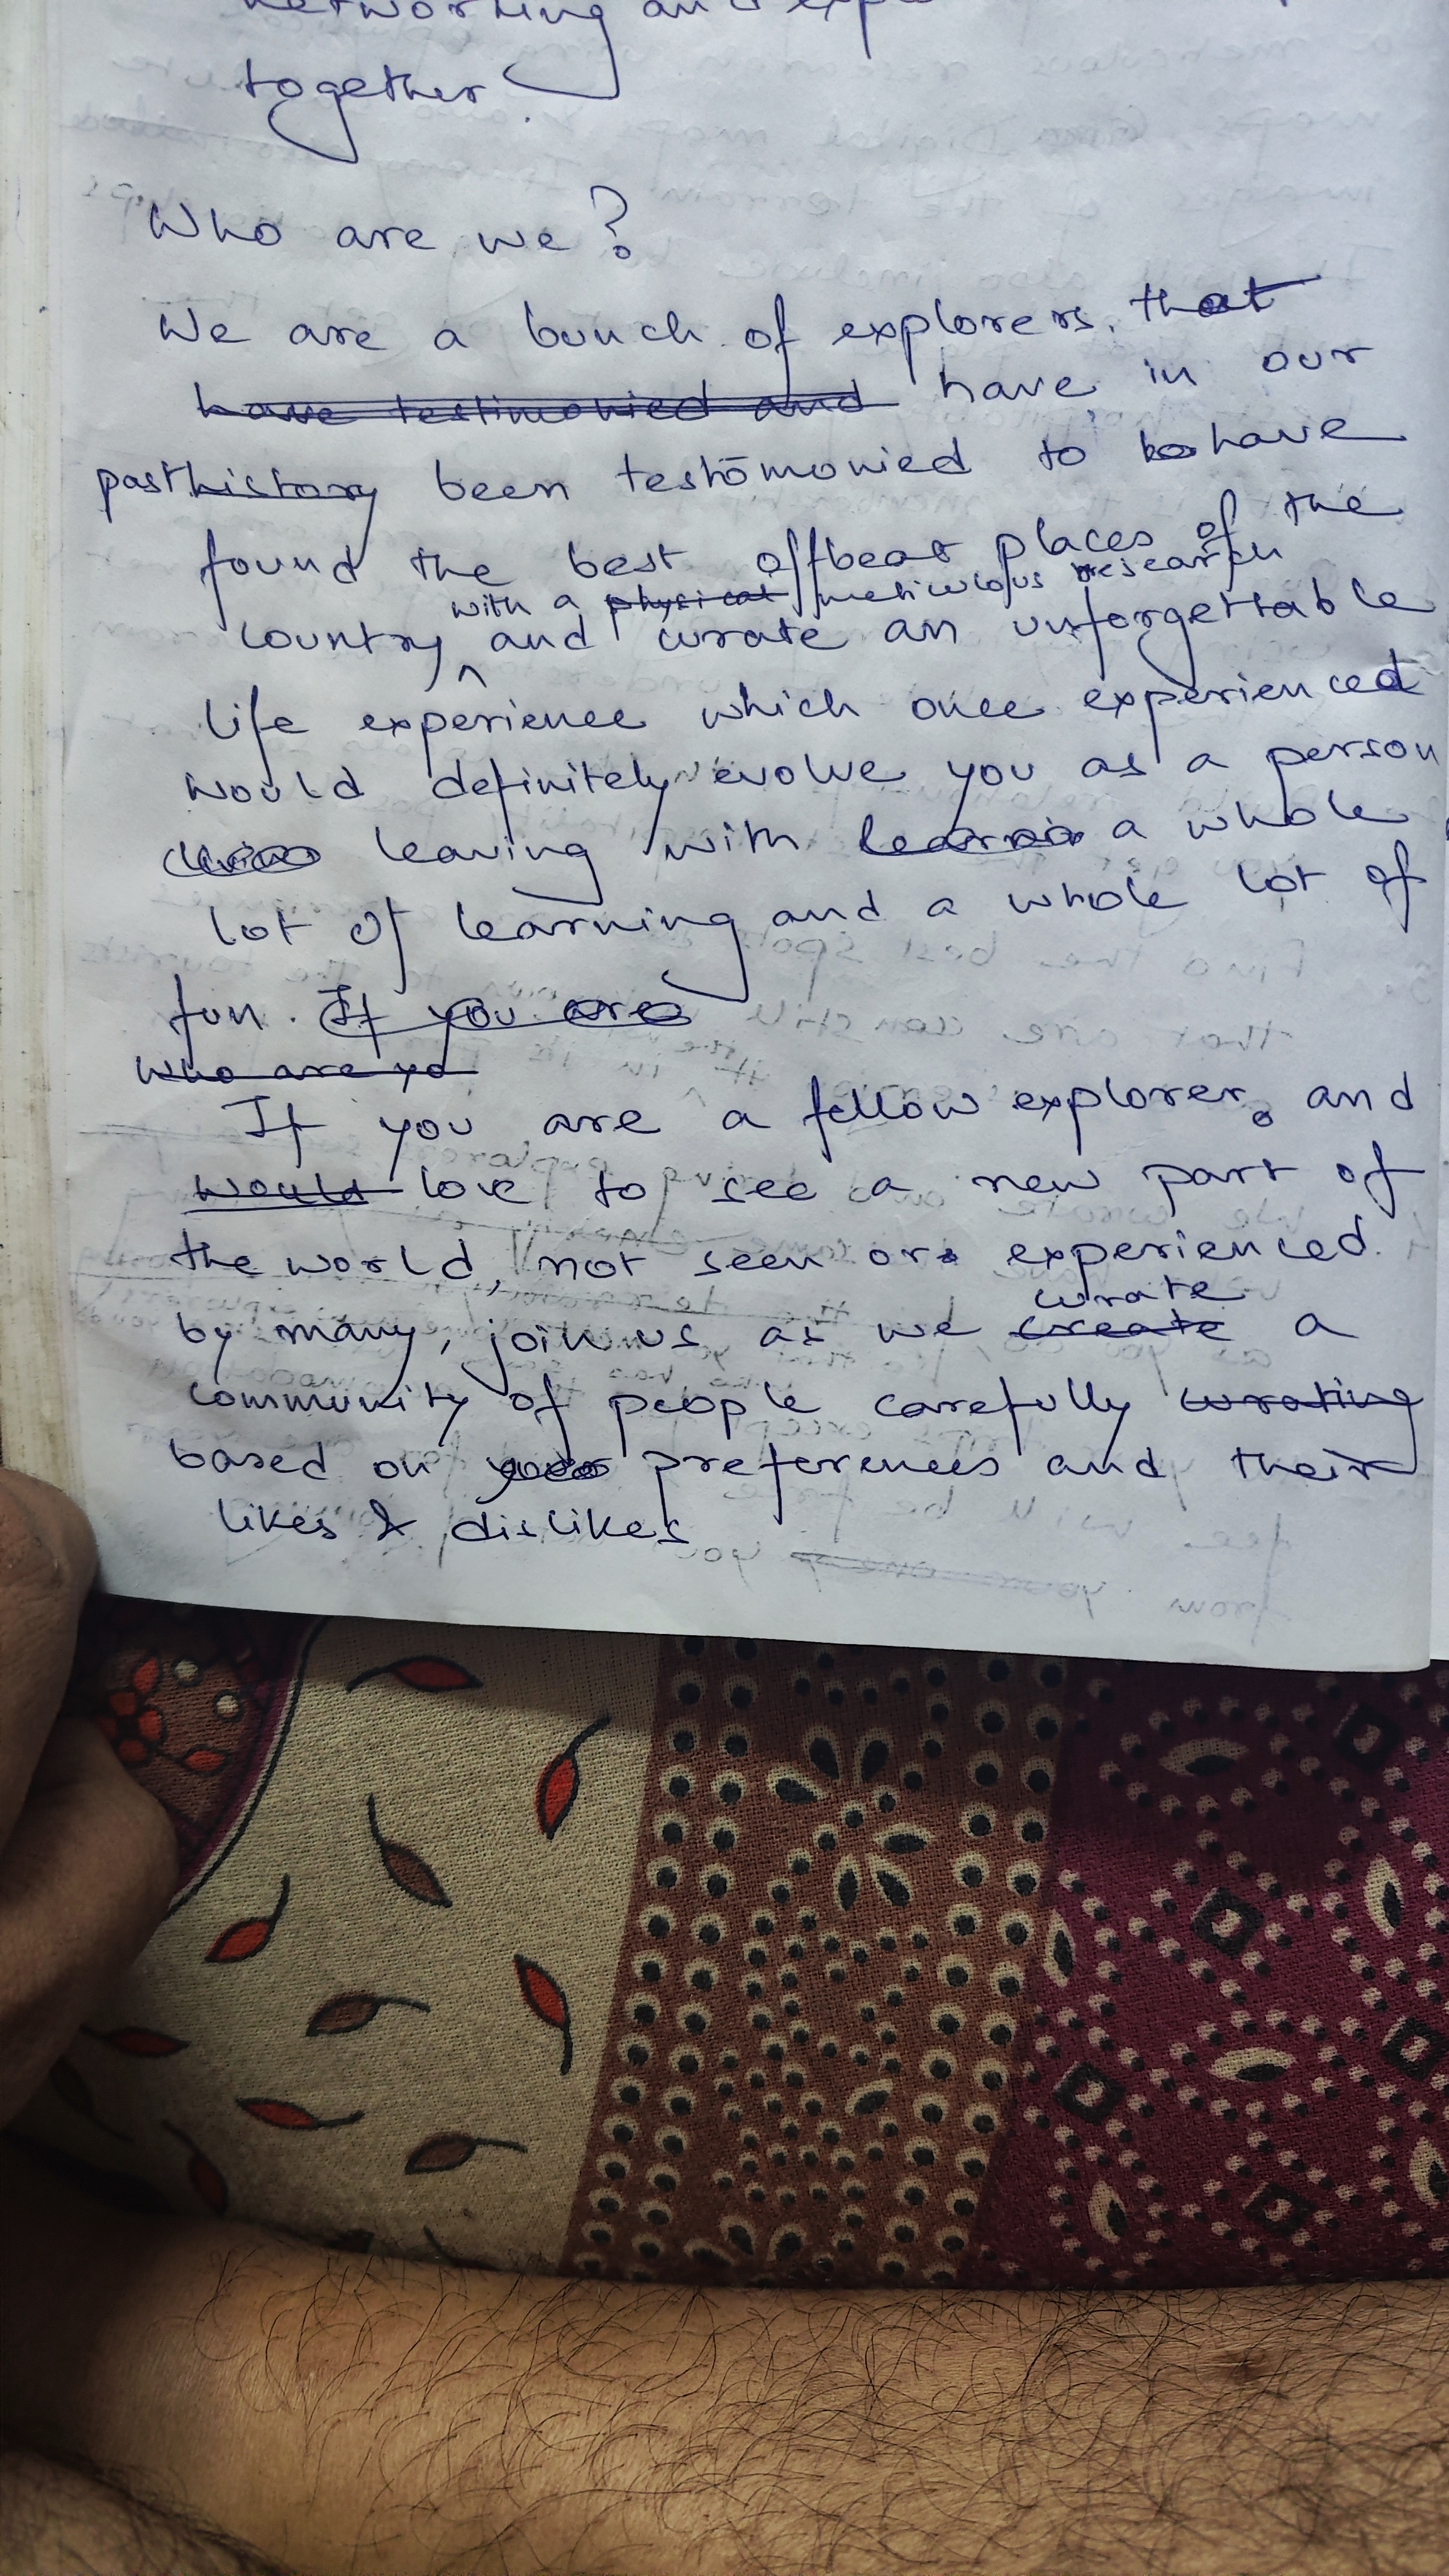 networking and
together.
Who are we?
We are a bunch of explorers, that
have testimonied and have in our
past history been testomonied to have
found the best offbeat places of the
with a physical meticulous research
country and curate an unforgettable
life experience which once experienced
would definitely evolve you as a person
leaving with a whole
lot of learning and a whole lot of
fun. If you are
who are yo
If you are a fellow explorer, and
would love to see a new part of
the world, not seen or experienced
curate
by many, join us as we create a
community of people carefully curating
based on your preferences and their
likes & dislikes